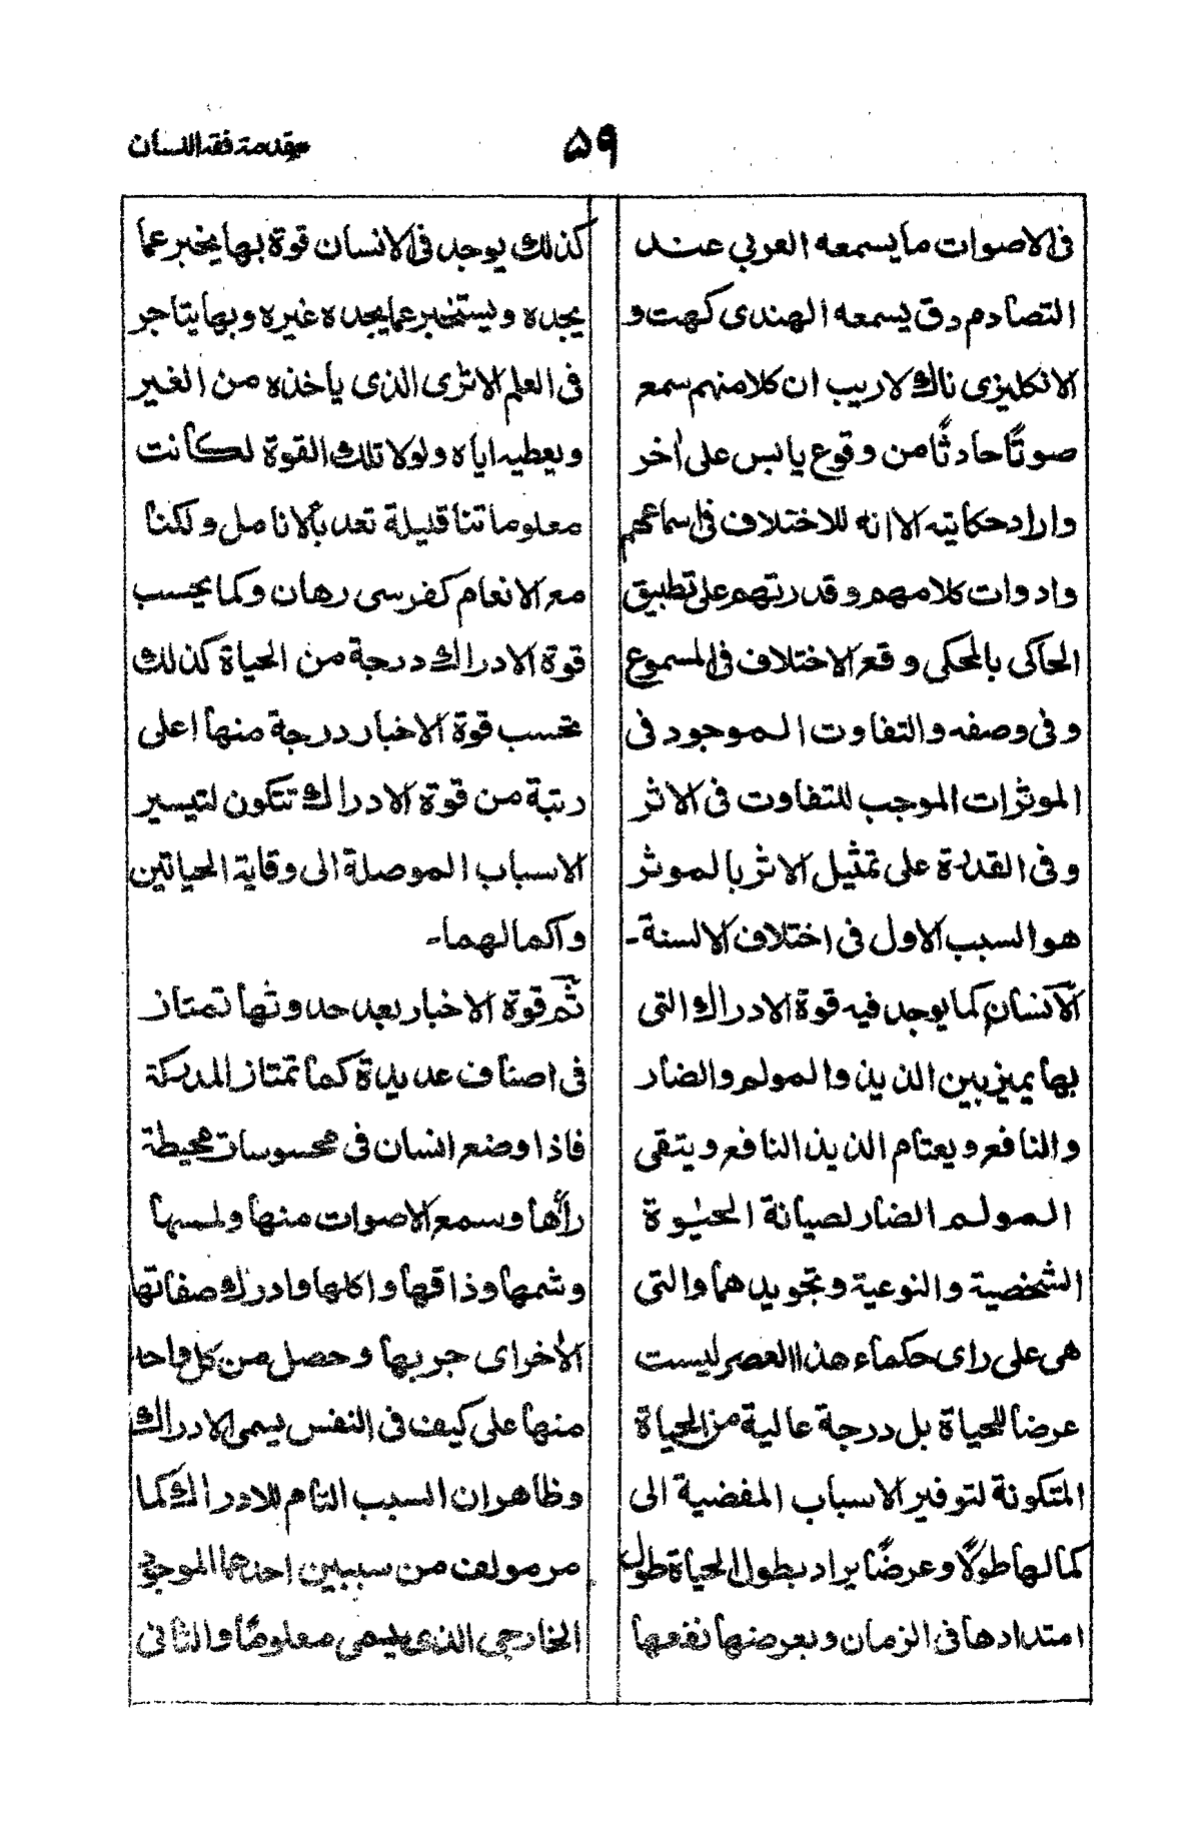 ۵۹
مقدمة فقه اللسان
فى الاصوات ما يسمعه العربي عند
التصادم دق يسمعه الهندى كهت و
الانكليزى ناك لاريب ان كلا منهم سمع
صوتًا حادثًا من وقوع يابس على أخر
واراد حكايته الا انه للاختلاف فى اسماعهم
وادوات كلامهم وقدرتهم على تطبيق
الحاكى بالمحكى وقع الاختلاف فى المسموع
وفى وصفه والتفاوت الموجود فى
الموثرات الموجب للتفاوت فى الاثر
وفى القدرة على تمثيل الاثر بالموثر
هو السبب الاول فى اختلاف الالسنة-
الآنسان كما يوجد فيه قوة الادراك التى
بها يميز بين الذيذ والمولم والضار
والنافع ويعتام الذيذ النافع ويتقى
المولم الضار لصيانة الحيٰوة
الشخصية والنوعية وتجويدهما والتى
هى على راى حكماء هذا العصر ليست
عرضا للحياة بل درجة عالية من الحياة
المتكونة لتوفير الاسباب المفضية الى
كمالها طولًا وعرضًا يراد بطول الحياة طول
امتدادها فى الزمان وبعرضها نفعها
كذلك يوجد فى الانسان قوة بها يخبر عما
يجده ويستخبر عما يجده غيره وبها يتاجر
فى العلم الاثرى الذى ياخذه من الغير
ويعطيه اياه ولولا تلك القوة لكانت
معلوماتنا قليلة تعد بالانامل ولكنا
مع الانعام كفرسى رهان وكما يحسب
قوة الادراك درجة من الحياة كذلك
تحسب قوة الاخبار درجة منها اعلى
رتبة من قوة الادراك تتكون لتيسير
الاسباب الموصلة الى وقاية الحياتين
واكمالهما-
ثم قوة الاخبار بعد حدوثها تمتاز
فى اصناف عديدة كما تمتاز المدركة
فاذا وضع انسان فى محسوسات محيطة
رأها وسمع الاصوات منها ولمسها
وشمها وذاقها واكلها وادرك صفاتها
الأخر اى جربها وحصل من كل واحد
منها على كيف فى النفس يسمى الادراك
وظاهر ان السبب التام للادراك كما
مر مولف من سببين احدهما الموجود
الخارجى الذى يسمى معلومًا والثانى